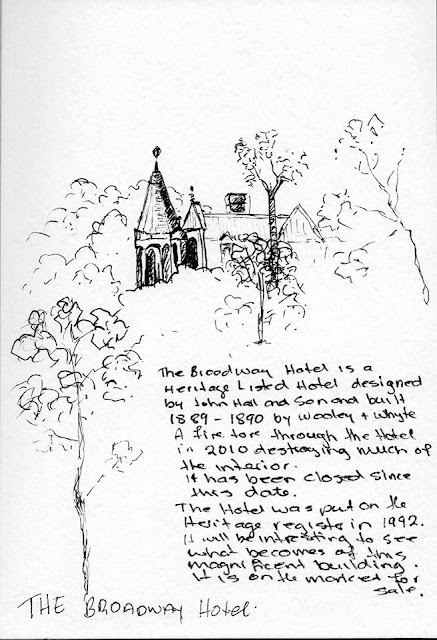 The Broodway Hotel is a
Heritage Listed Hotel designed
by John Hall and Son and built
1889 - 1890 by Wooley + Whyte
A fire tore through the Hotel
in 2010 destroying much of
the interior.
It has been closed since
this date.
The Hotel was put on the
Heritage register in 1992.
It will be intresting to see
what becomes of this
magnificent building.
It is on the market for
sale.
THE BROADWAY HOTEL.